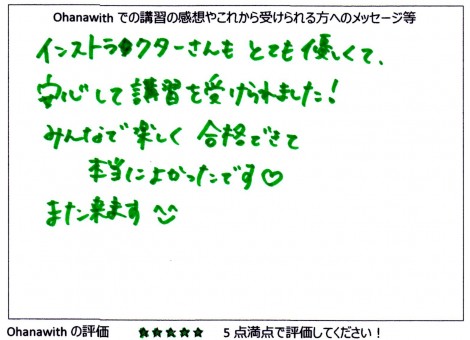 Ohanawith での講習の感想やこれから受けられる方へのメッセージ等
インストラクターさんも とても優しくて、
安心して講習を受けられました！
みんなで楽しく 合格できて
本当によかったです♡
また来ます ^^
Ohanawith の評価 ★★★★★ 5 点満点で評価してください！